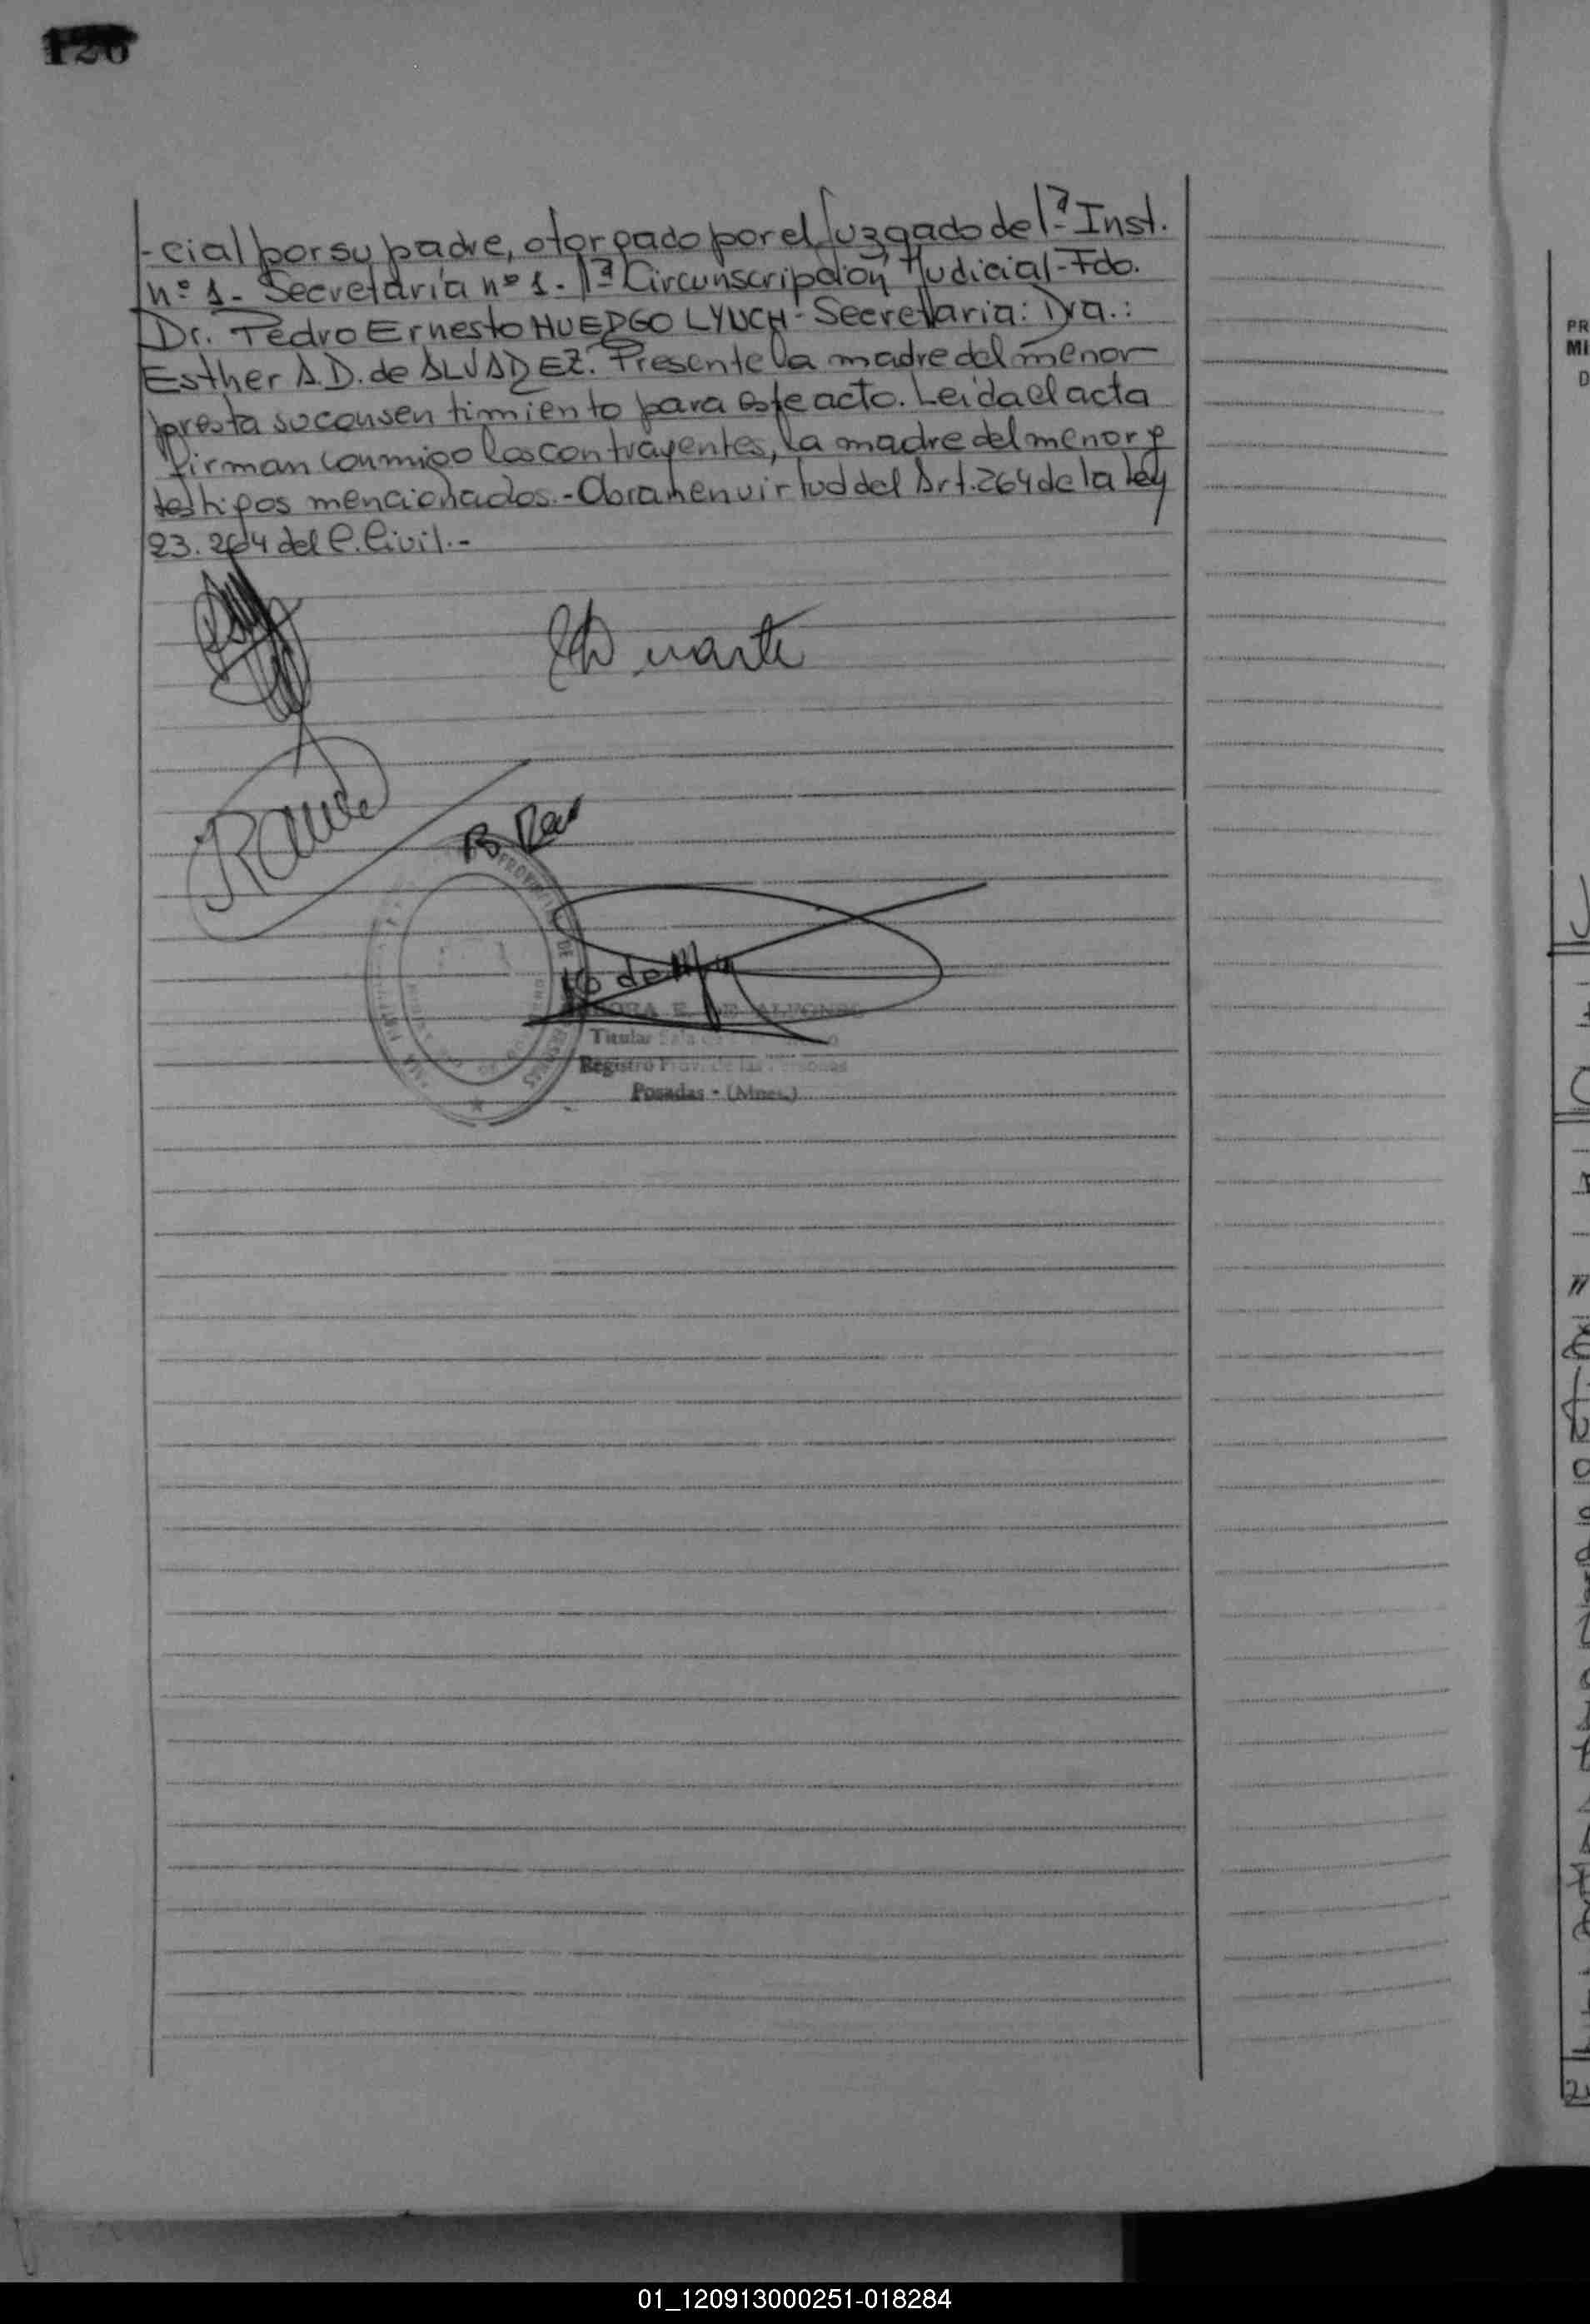 126
-cial por su padre, otorgado por el Juzgado de 1ª Inst.
nº 1- Secretaría nº 1- 1ª Circunscripción Judicial-Fdo.
Dr. Pedro Ernesto HUERGO LYNCH- Secretaria: Dra.:
Esther A.D. de ALVAREZ. Presente la madre del menor
presta su consentimiento para este acto. Leida el acta
firman conmigo los contrayentes, la madre del menor y
testigos mencionados.- Obrahenvirtud del Art. 264 de la Ley
23.264 del C. Civil.-
Duarte
PROVINCIA DE
E. DE ALFONSO
Titular
Registro Prov. de las Personas
Posadas - (Mnes.)
PR
MI
D
01_120913000251-018284